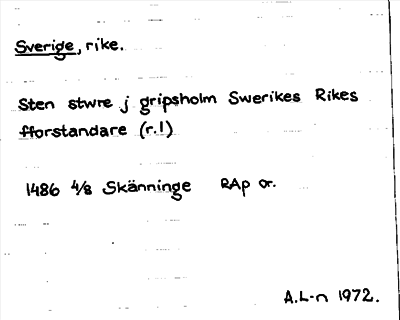 Sverige, rike.
Sten stwre j gripsholm Swerikes Rikes
fforstandare (r.!)
1486 4/8 Skänninge RAp or.
A.L-n 1972.